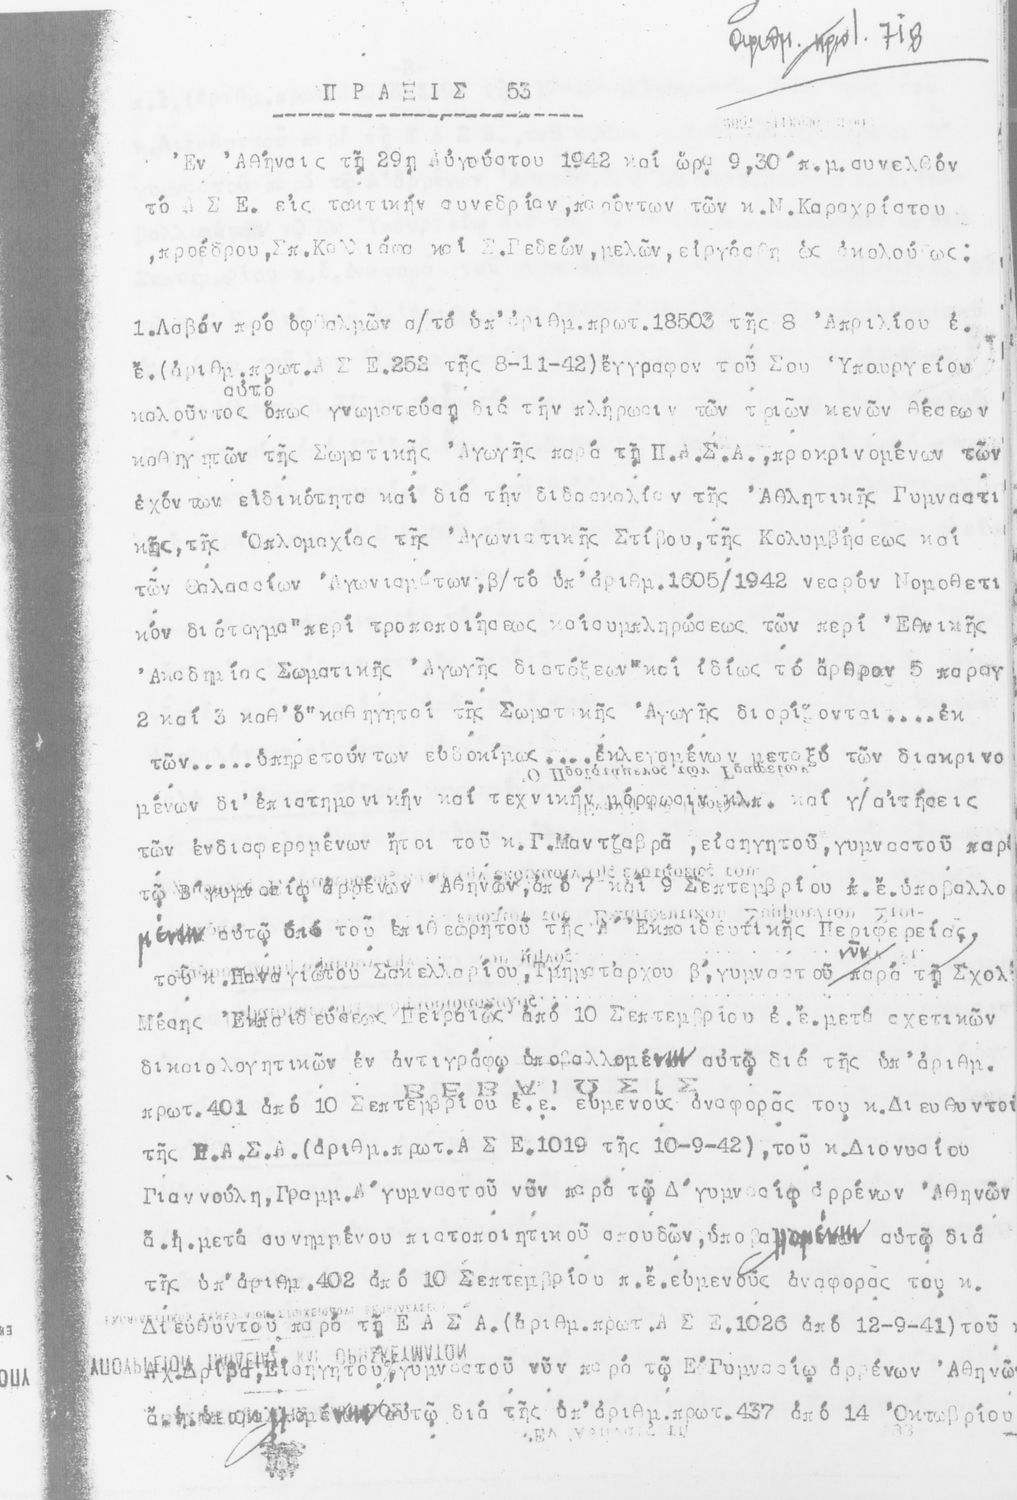 ἀριθμ. πρωτ. 718
ΠΡΑΞΙΣ 53
Ἐν Ἀθήναις τῇ 29ῃ Αὐγούστου 1942 καί ὥρᾳ 9,30 π.μ. συνελθόν
τό Α Σ Ε. εἰς τακτικήν συνεδρίαν, παρόντων τῶν κ.Ν.Καραχρίστου
,προέδρου, Σπ.Καλλιάφα καί Σ.Γεδεών, μελῶν, εἰργάσθη ὡς ἀκολούθως:
1.Λαβόν πρό ὀφθαλμῶν α/τό ὑπ'ἀριθμ.πρωτ.18503 τῆς 8 Ἀπριλίου ἐ.
ἔ.(ἀριθμ.πρωτ.Α Σ Ε.252 τῆς 8-11-42)ἔγγραφον τοῦ Σου Ὑπουργείου
αὐτό
καλοῦντος ὅπως γνωματεύσῃ διά τήν πλήρωσιν τῶν τριῶν κενῶν θέσεων
καθηγητῶν τῆς Σωματικῆς Ἀγωγῆς παρά τῇ Π.Α.Σ.Α.,προκρινομένων τῶν
ἐχόντων εἰδικότητα καί διά τήν διδασκαλίαν τῆς Ἀθλητικῆς Γυμναστι
κῆς,τῆς Ὁπλομαχίας τῆς Ἀγωνιστικῆς Στίβου,τῆς Κολυμβήσεως καί
τῶν Θαλασσίων Ἀγωνισμάτων,β/τό ὑπ'ἀριθμ.1605/1942 νεαρόν Νομοθετι
κόν διάταγμα"περί τροποποιήσεως καίσυμπληρώσεως τῶν περί Ἐθνικῆς
Ἀκαδημίας Σωματικῆς Ἀγωγῆς διατάξεων"καί ἰδίως τό ἄρθρον 5 παραγ
2 καί 3 καθ'ὅ"καθηγηταί τῆς Σωματικῆς Ἀγωγῆς διορίζονται....ἐκ
τῶν.....ὑπηρετούντων εὐδοκίμως....ἐκλεγομένων μεταξύ τῶν διακρινο
μένων δι'ἐπιστημονικήν καί τεχνικήν μόρφωσιν κλπ. καί γ/αἰτήσεις
τῶν ἐνδιαφερομένων ἤτοι τοῦ κ.Γ.Μαντζαβρᾶ ,εἰσηγητοῦ,γυμναστοῦ παρά
τῷ Β΄γυμνασίῳ ἀρρένων Ἀθηνῶν,ἀπό 7 καί 9 Σεπτεμβρίου ἐ.ἔ.ὑποβαλλο
μένων αὐτῷ ὑπό τοῦ ἐπιθεωρητοῦ τῆς Α΄ Ἐκπαιδευτικῆς Περιφερείας,
νῦν
τοῦ κ.Παναγιώτου Σακελλαρίου,Τμηματάρχου β΄,γυμναστοῦ παρά τῇ Σχολῇ
Μέσης Ἐκπαιδεύσεως Πειραιῶς ἀπό 10 Σεπτεμβρίου ἐ.ἔ.μετά σχετικῶν
δικαιολογητικῶν ἐν ἀντιγράφῳ ὑποβαλλομένων αὐτῷ διά τῆς ὑπ'ἀριθμ.
ΒΕΒΑΙΩΣΙΣ
πρωτ.401 ἀπό 10 Σεπτεμβρίου ἐ.ἔ. εὐμενοῦς ἀναφορᾶς του κ.Διευθυντοῦ
τῆς Π.Α.Σ.Α.(ἀριθμ.πρωτ.Α Σ Ε.1019 τῆς 10-9-42),τοῦ κ.Διονυσίου
Γιαννούλη,Γραμμ.Α΄γυμναστοῦ νῦν παρά τῷ Δ΄γυμνασίῳ ἀρρένων Ἀθηνῶν
ἄ.ἡ.μετά συνημμένου πιστοποιητικοῦ σπουδῶν,ὑποβαλλομένων αὐτῷ διά
τῆς ὑπ'ἀριθμ.402 ἀπό 10 Σεπτεμβρίου π.ἔ.εὐμενοῦς ἀναφορᾶς του κ.
Διευθυντοῦ παρά τῇ Ε Α Σ Α.(ἀριθμ.πρωτ.Α Σ Ε.1026 ἀπό 12-9-41)τοῦ κ
Ἀχ.Δρίβα,Εἰσηγητοῦ,γυμναστοῦ νῦν παρά τῷ Ε΄Γυμνασίῳ ἀρρένων Ἀθηνῶν
ἄ.ἡ.ὑποβαλλομένων αὐτῷ διά τῆς ὑπ'ἀριθμ.πρωτ.437 ἀπό 14 Ὀκτωβρίου